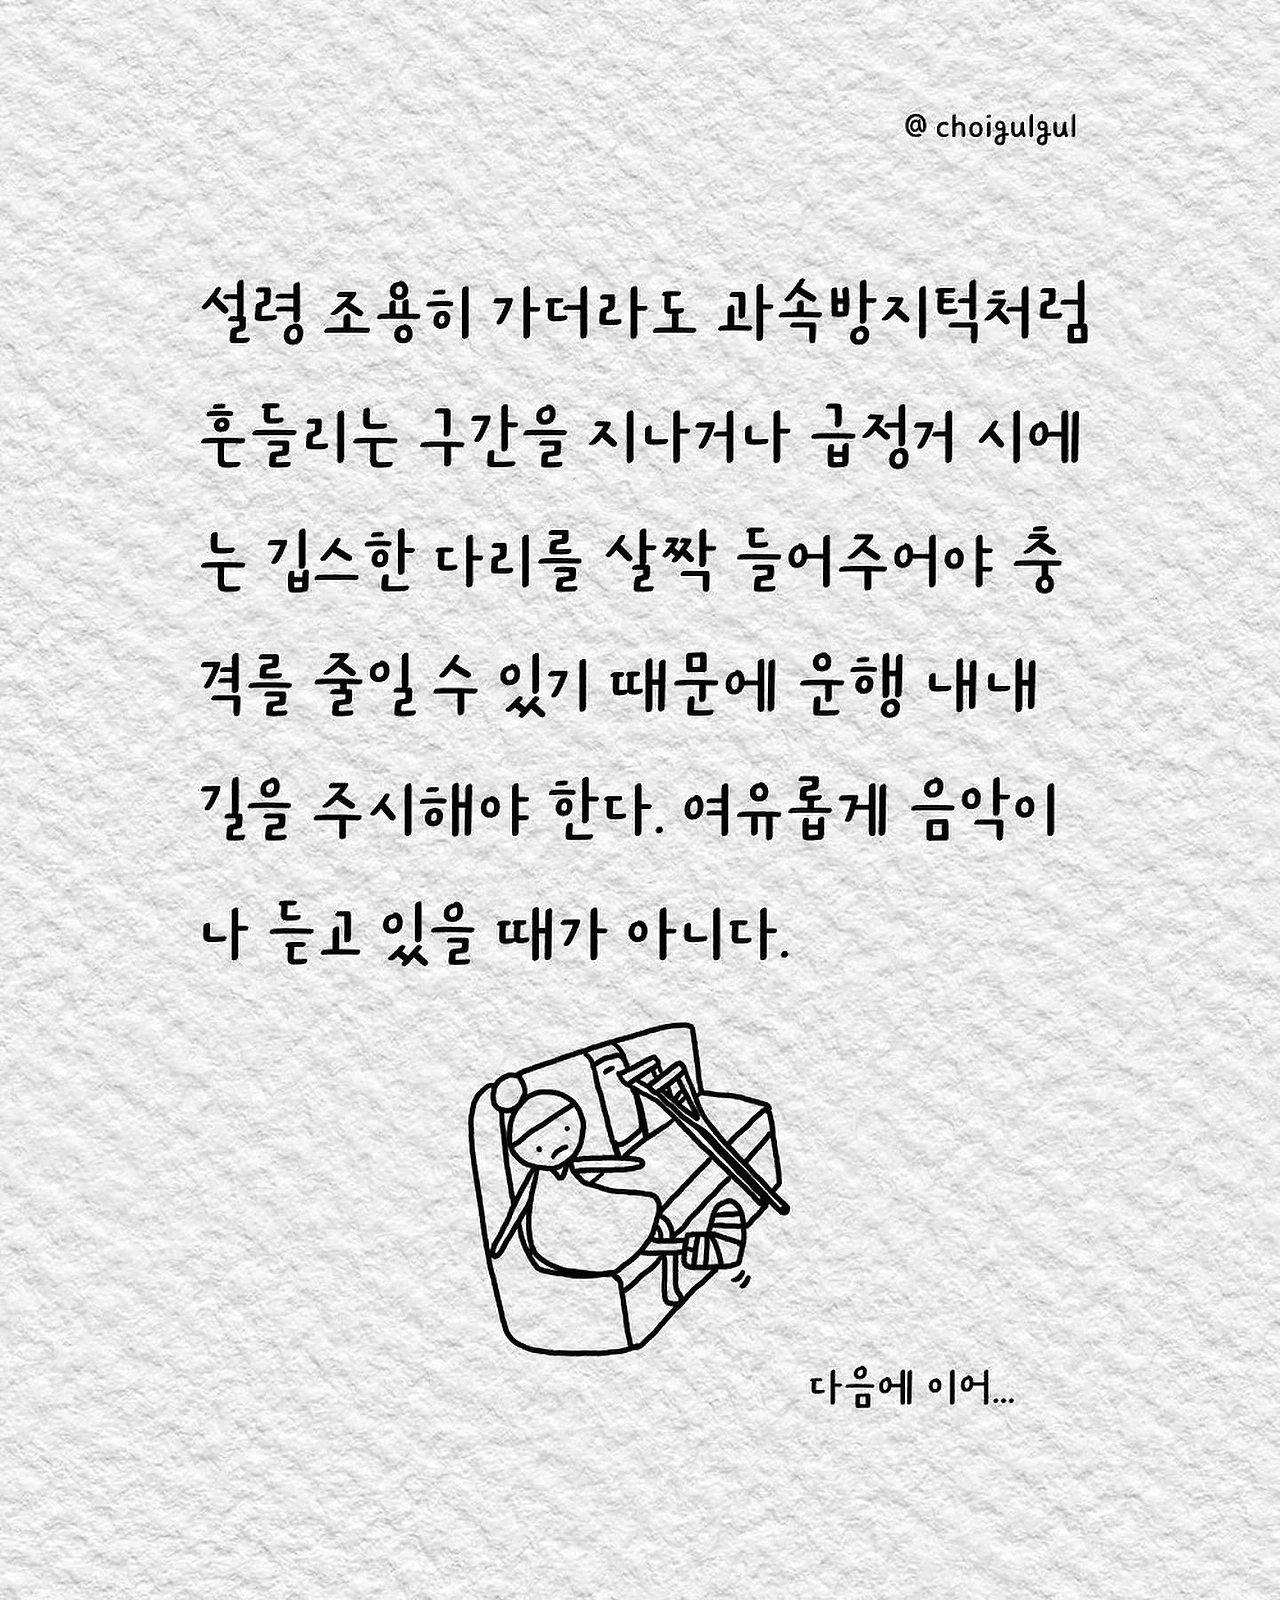 @ choigulgul
설령 조용히 가더라도 과속방지턱처럼
흔들리는 구간을 지나거나 급정거 시에
는 깁스한 다리를 살짝 들어주어야 충
격를 줄일 수 있기 때문에 운행 내내
길을 주시해야 한다. 여유롭게 음악이
나 듣고 있을 때가 아니다.
다음에 이어...